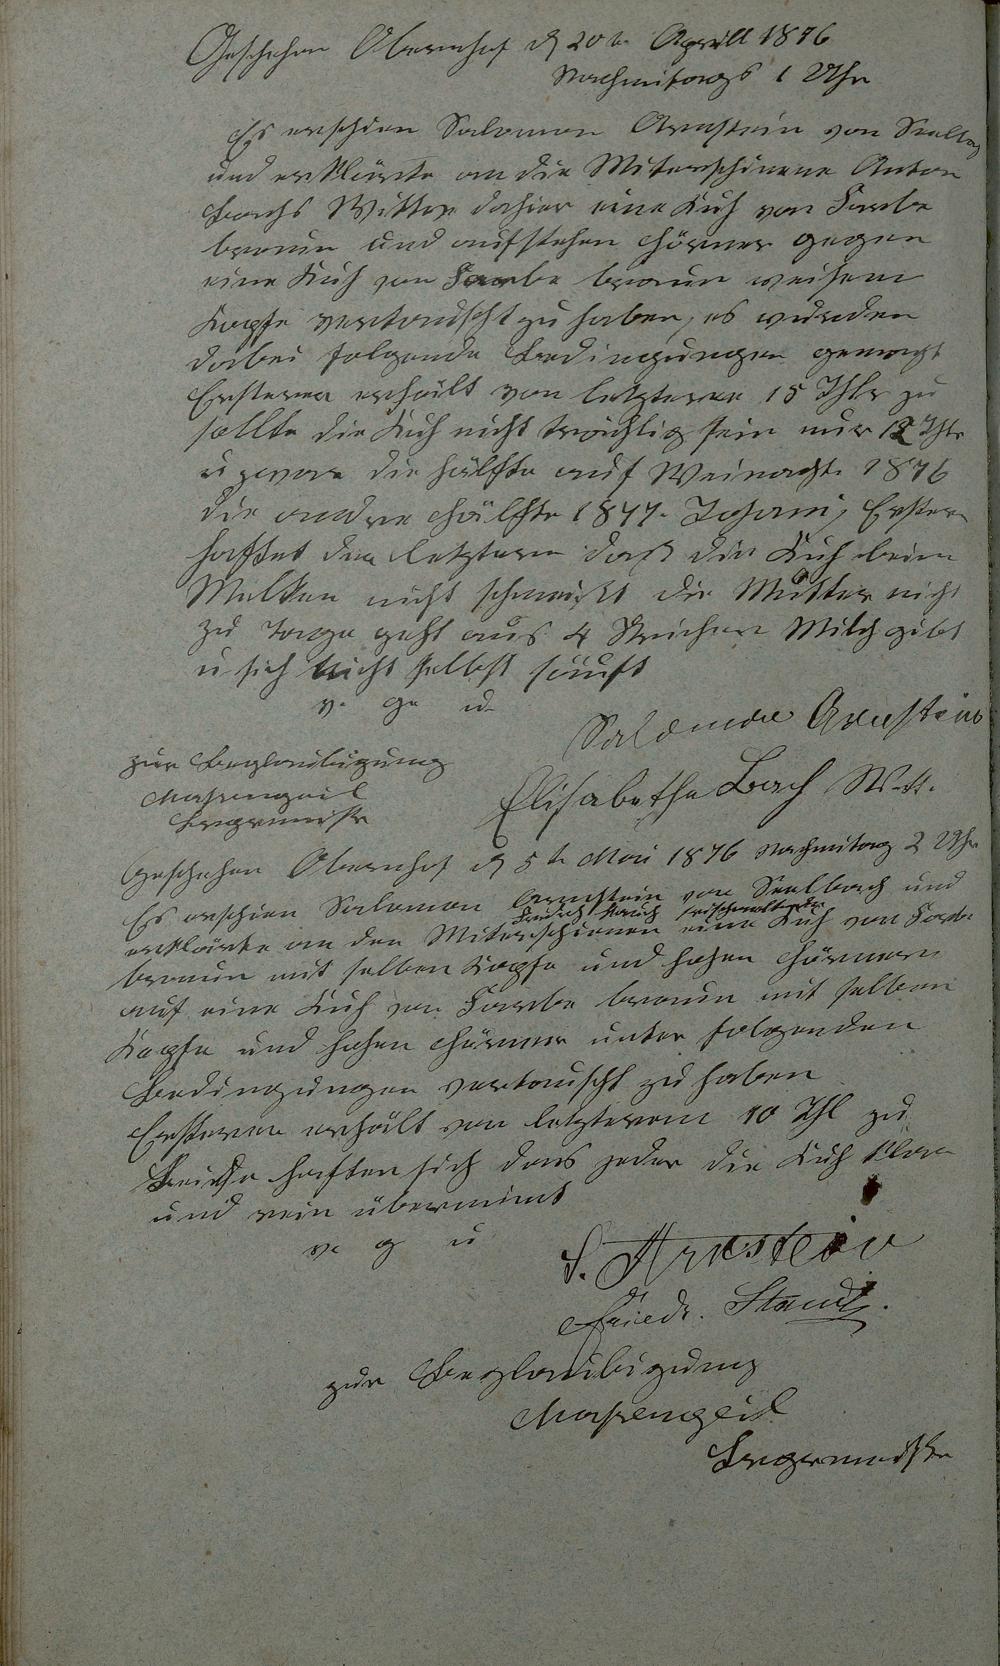 Geschehen Obernhof d 20te Aprill 1876
Nachmitags 1 Uhr
Es erschien Salomon Arnstein von Seelbach
und erklärte an die Miterschinene Anton
Bachs Wittwe dahier eine Kuh von Farbe
braun und aufstehen Hörner gegen
eine Kuh von Farbe braun weisem
Kopfe vertauscht zu haben, es wurden
dabei folgende Bedingungen gemacht
Ersterer erhält von letzterer 15 Thlr zu
sollte die Kuh nicht trächtig sein nur 12 Thlr
u zwar die Hälfte auf Weinacht 1876
die andre Hälfte 1877. Johani, Erster
haftet der letztern daß die Kuh beim
Melken nicht schmeist die Mutter nicht
zu Tage geht aus 4 Strichen Milch gibt
u sich nicht selbst säuft
v. g. u.
Salomon Arnstein
zur Beglaubigung
Elisabetha Bach Witt.
Massengeil
Bürgermeistr
Geschehen Obernhof d 5te Mai 1876 Nachmitag 2 Uhr
Es erschien Salomon Arnstein von Seelbach und
erklärte an den Miterschienen eine Kuh von Farbe
braun mit selben Kopfe und hohen Hörnern
auf eine Kuh von Farbe braun mit selben
Kopfe und hohen Hörner unter folgenden
Bedingungen vertauscht zu haben
Ersterer erhält von letzterem 10 Thl zu
Beide haften sich das jeder die Kuh klar
und rein übernimt
v. g u
S. Arnstein
Friedr.
zur Beglaubigung
Massengeil
Bürgermeistr